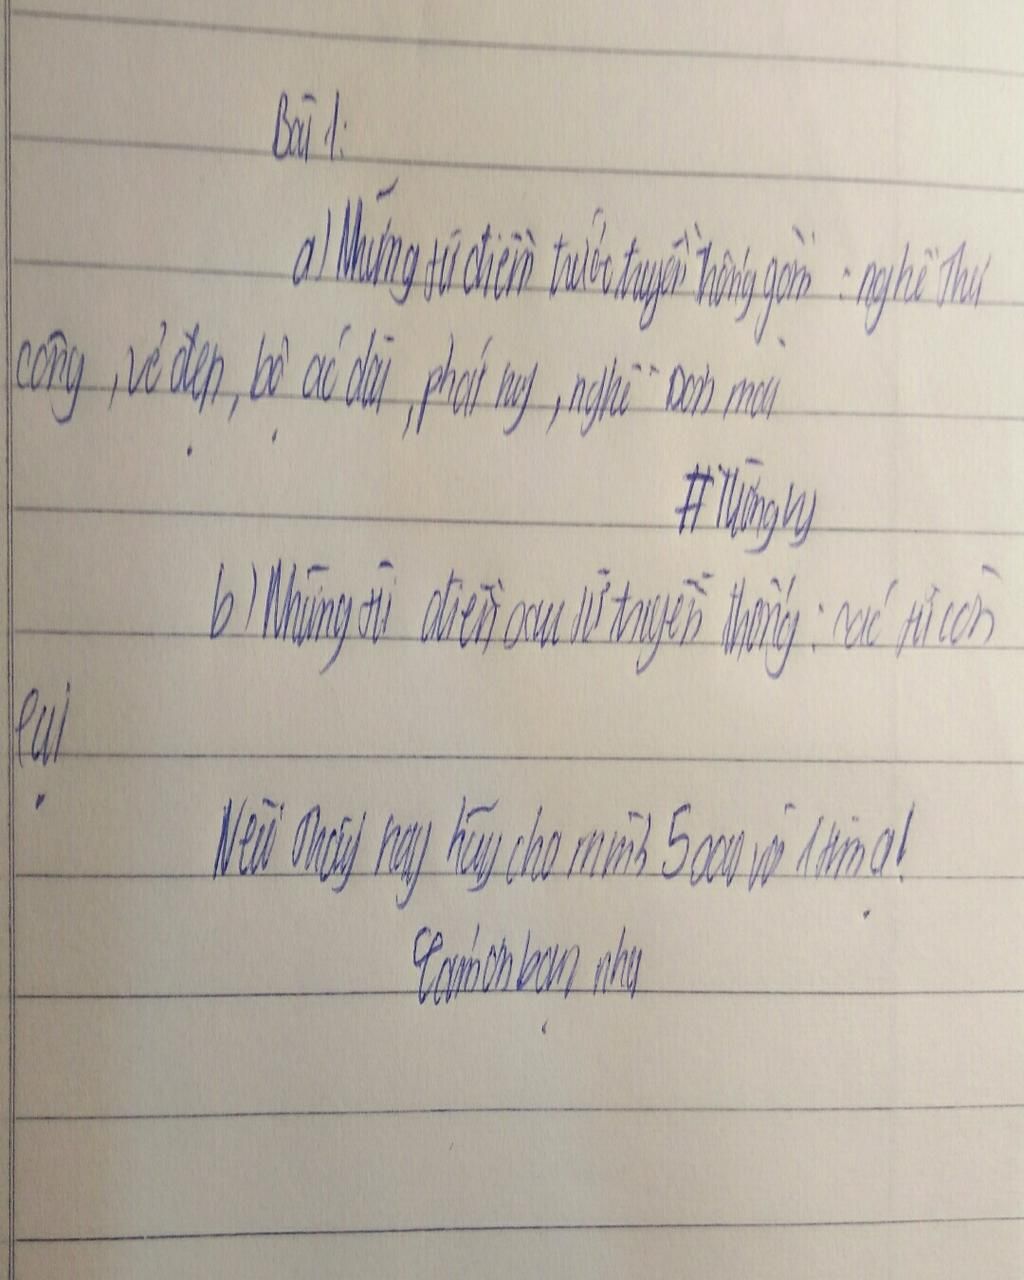 Bài 1:
a) Những từ điền trước truyền thống gồm : nghề thủ
công , vẻ đẹp , bộ áo dài , phát huy , nghề sơn mài
#Tường vy
b) Những từ điền sau từ truyền thống : các từ còn
lại
Nếu thấy hay hãy cho mình 5 sao và 1 tim ạ!
Cảm ơn bạn nha